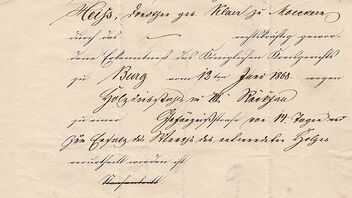 Heiß, Dorothea geb. Klaer zu Moeckern
durch das — rechtskräftig gewor-
dene Erkenntniß des Königlichen Kreisgerichts
zu Burg vom 12ten Juni 1868. wegen
Holzdiebstahl im W.
zu einer Gefängnißstrafe von 14 Tagen und
zum Ersatz des Werths des entwendeten Holzes
verurtheilt worden ist